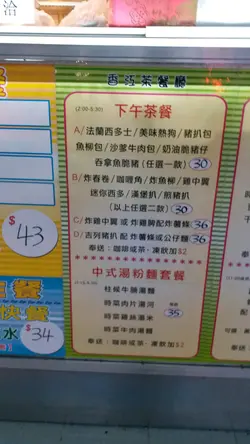 洽
香江茶餐廳
(2:00-5:30)
下午茶餐
A/法蘭西多士/美味熱狗/豬扒包
魚柳包/沙爹牛肉包/奶油脆豬仔
吞拿魚脆豬(任選一款) 30
B/炸春卷/咖喱角/炸魚柳/雞中翼
迷你西多/漢堡扒/煎豬扒
(以上任選二款) 30
C/炸雞中翼 或 炸雞髀配炸薯條 36
D/吉列豬扒 配 炸薯條或公仔麵 36
奉送:咖啡或茶·凍飲加$2
中式湯粉麵套餐
柱候牛腩湯麵
時菜肉片湯河
時菜雞絲湯米 35
時菜牛肉湯麵
奉送:咖啡或茶·凍飲加$2
$43
餐
快餐
水 $34